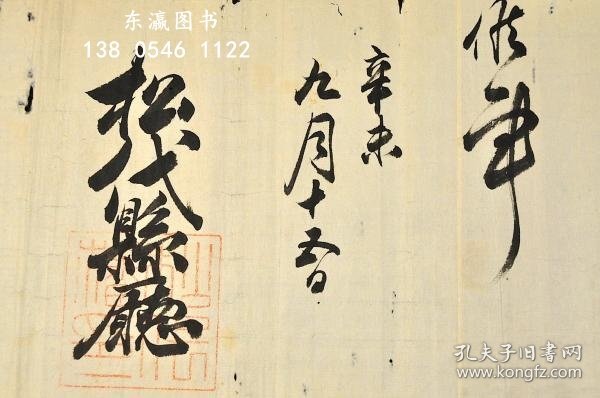 东瀛图书
138 0546 1122
候事
辛未
九月十五日
松代縣廳
孔夫子旧书网
www.kongfz.com